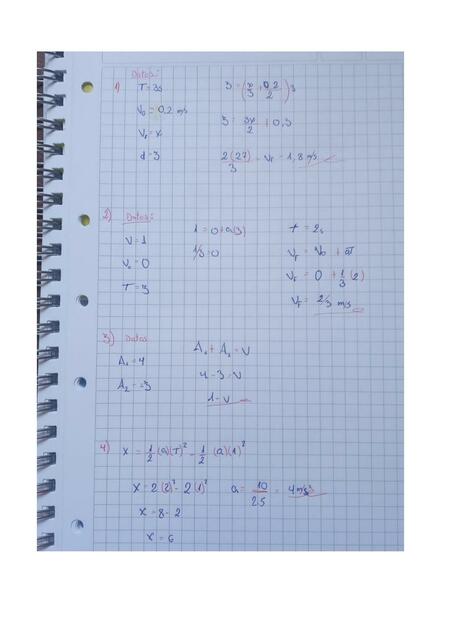 1) Datos:
T = 3s
V₀ = 0,2 m/s
Vf = x
d = 3
3 = (x + 0,2 / 2) 3
3 = 3x/2 + 0,3
2(27)/3 = Vf = 1,8 m/s
2) Datos:
V = 1
V₀ = 0
T = 3
1 = 0 + a(3)
1/3 = 0
t = 2s
Vf = V₀ + aT
Vf = 0 + 1/3 (2)
Vf = 2/3 m/s
3) Datos
A₁ = 4
A₂ = -3
A₁ + A₂ = V
4 - 3 = V
1 = V
4) X = 1/2 (a)(T)² - 1/2 (a)(1)²
X = 2(2)² - 2(1)²
X = 8 - 2
X = 6
a = 10/25 = 4 m/s²